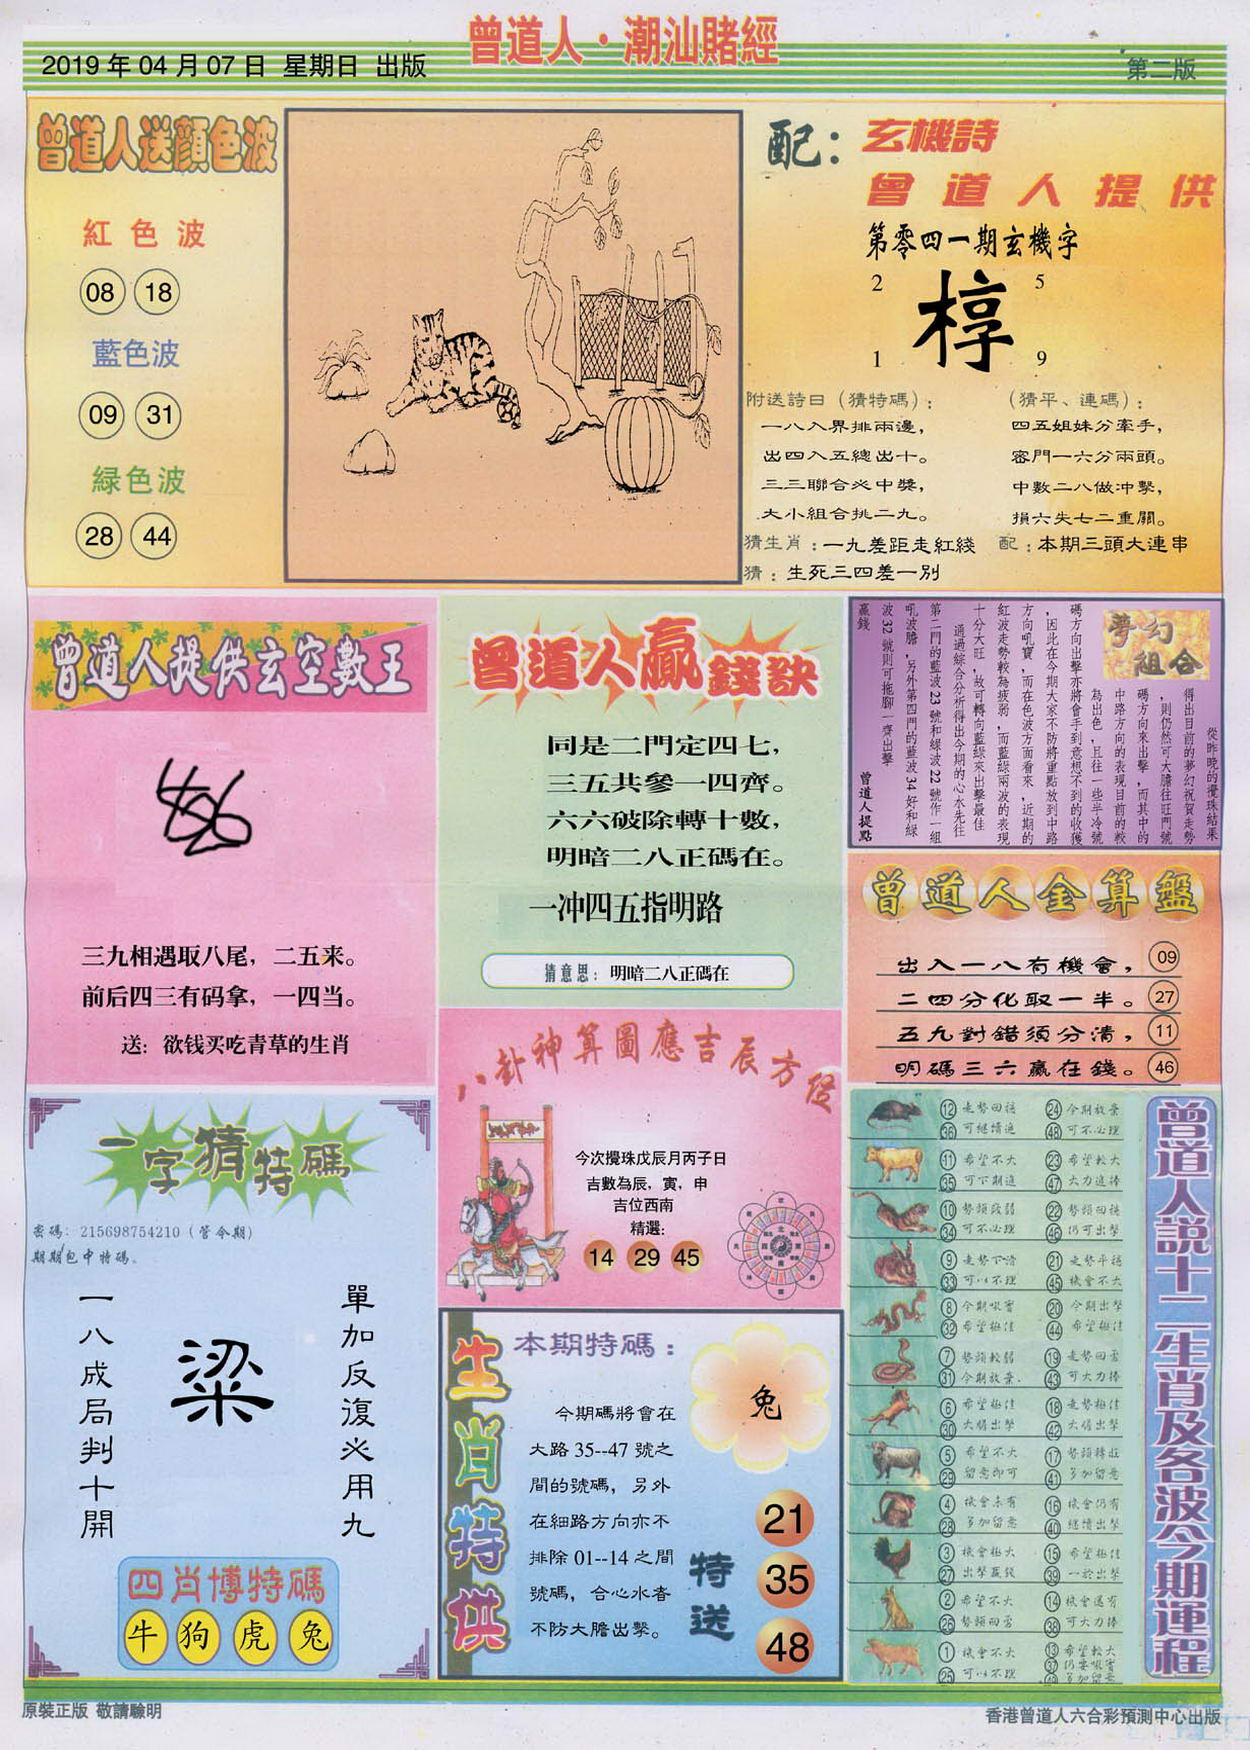 曾道人·潮汕賭經
2019 年 04 月 07 日 星期日 出版
第二版
曾道人送顏色波
紅色波
08 18
藍色波
09 31
綠色波
28 44
配：玄機詩
曾道人提供
第零四一期玄機字
2 5
椁
1 9
附送詩曰（猜特碼）：
一八入界排兩邊，
出四入五總出十。
三三聯合必中獎，
大小組合挑二九。
（猜平、連碼）：
四五姐妹分牽手，
密門一六分兩頭。
中數二八做沖擊，
損六失七二重關。
猜生肖：一九差距走紅綫
配：本期三頭大連串
猜：生死三四差一別
曾道人提供玄空數王
三九相遇取八尾，二五来。
前后四三有码拿，一四当。
送：欲钱买吃青草的生肖
曾道人贏錢訣
同是二門定四七，
三五共參一四齊。
六六破除轉十數，
明暗二八正碼在。
一冲四五指明路
猜意思：明暗二八正碼在
夢幻組合
從昨晚的攪珠結果
得出目前的夢幻祝賀走勢
，則仍然可大膽往旺門號
碼方向來出擊，而其中的
中路方向的表現目前的較
為出色，且往一些半冷號
碼方向出擊亦將會手到意想不到的收獲
，因此在今期大家不防將重點放到中路
方向吼寶，而在色波方面看來，近期的
紅波走勢較為疲弱，而藍綠兩波的表現
十分大旺，故可轉向藍綠來出擊最佳
通過綜合分析得出今期的心水先往
第二門的藍波 23 號和綠波 22 號作一組
吼波膽，另外第四門的藍波 34 好和綠
波 32 號則可拖腳一齊出擊
贏錢
曾道人提點
曾道人金算盤
出入一八有機會，09
二四分化取一半。27
五九對錯須分清，11
明碼三六贏在錢。46
一字猜特碼
密碼：215698754210（管令期）
期期包中特碼。
單加反復必用九
粱
一八成局判十開
四肖博特碼
牛 狗 虎 兔
八卦神算圖應吉辰方位
今次攪珠戊辰月丙子日
吉數為辰，寅，申
吉位西南
精選：
14 29 45
生肖特供
本期特碼：
兔
今期碼將會在
大路 35--47 號之
間的號碼，另外
在細路方向亦不
排除 01--14 之間
號碼，合心水者
不防大膽出擊。
特送
21
35
48
曾道人說十二生肖及各波今期運程
12 走勢回穩 24 今期放棄
36 可繼續追 48 可不必理
11 希望不大 23 希望較大
35 可下期追 47 大力追捧
10 勢頭疲弱 22 勢頭回穩
34 可不必理 46 仍可出擊
9 走勢下滑 21 走勢平穩
33 可以不理 45 機會不大
8 今期吼寶 20 今期出擊
32 希望極佳 44 希望極佳
7 勢頭較弱 19 走勢回雲
31 今期放棄. 43 可大力捧
6 希望極佳 18 走勢極佳
30 大膽出擊 42 大膽出擊
5 希望不大 17 勢頭轉旺
29 留意即可 41 多加留意
4 機會未有 16 機會仍有
28 多加留意 40 繼續出擊
3 機會極大 15 希望極佳
27 出擊贏錢 39 一於出擊
2 希望不大 14 機會還有
26 勢頭回雲 38 可大力捧
1 機會不大 13 希望較大
25 可以不理 37 仍要吼寶
49 多加留意
原裝正版 敬請驗明
香港曾道人六合彩預測中心出版